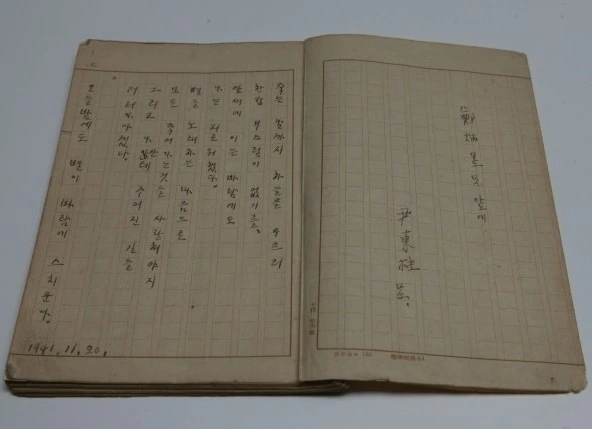 鄭炳昱兄 앞에
尹東柱 呈.
죽는 날까지 하늘을 우르러
한점 부끄럼이 없기를,
잎새에 이는 바람에도
나는 괴로워했다.
별을 노래하는 마음으로
모든 죽어가는것을 사랑해야지
그리고 나안테 주어진 길을
거러가야겠다.
오늘밤에도 별이 바람에 스치운다.
1941. 11. 20.